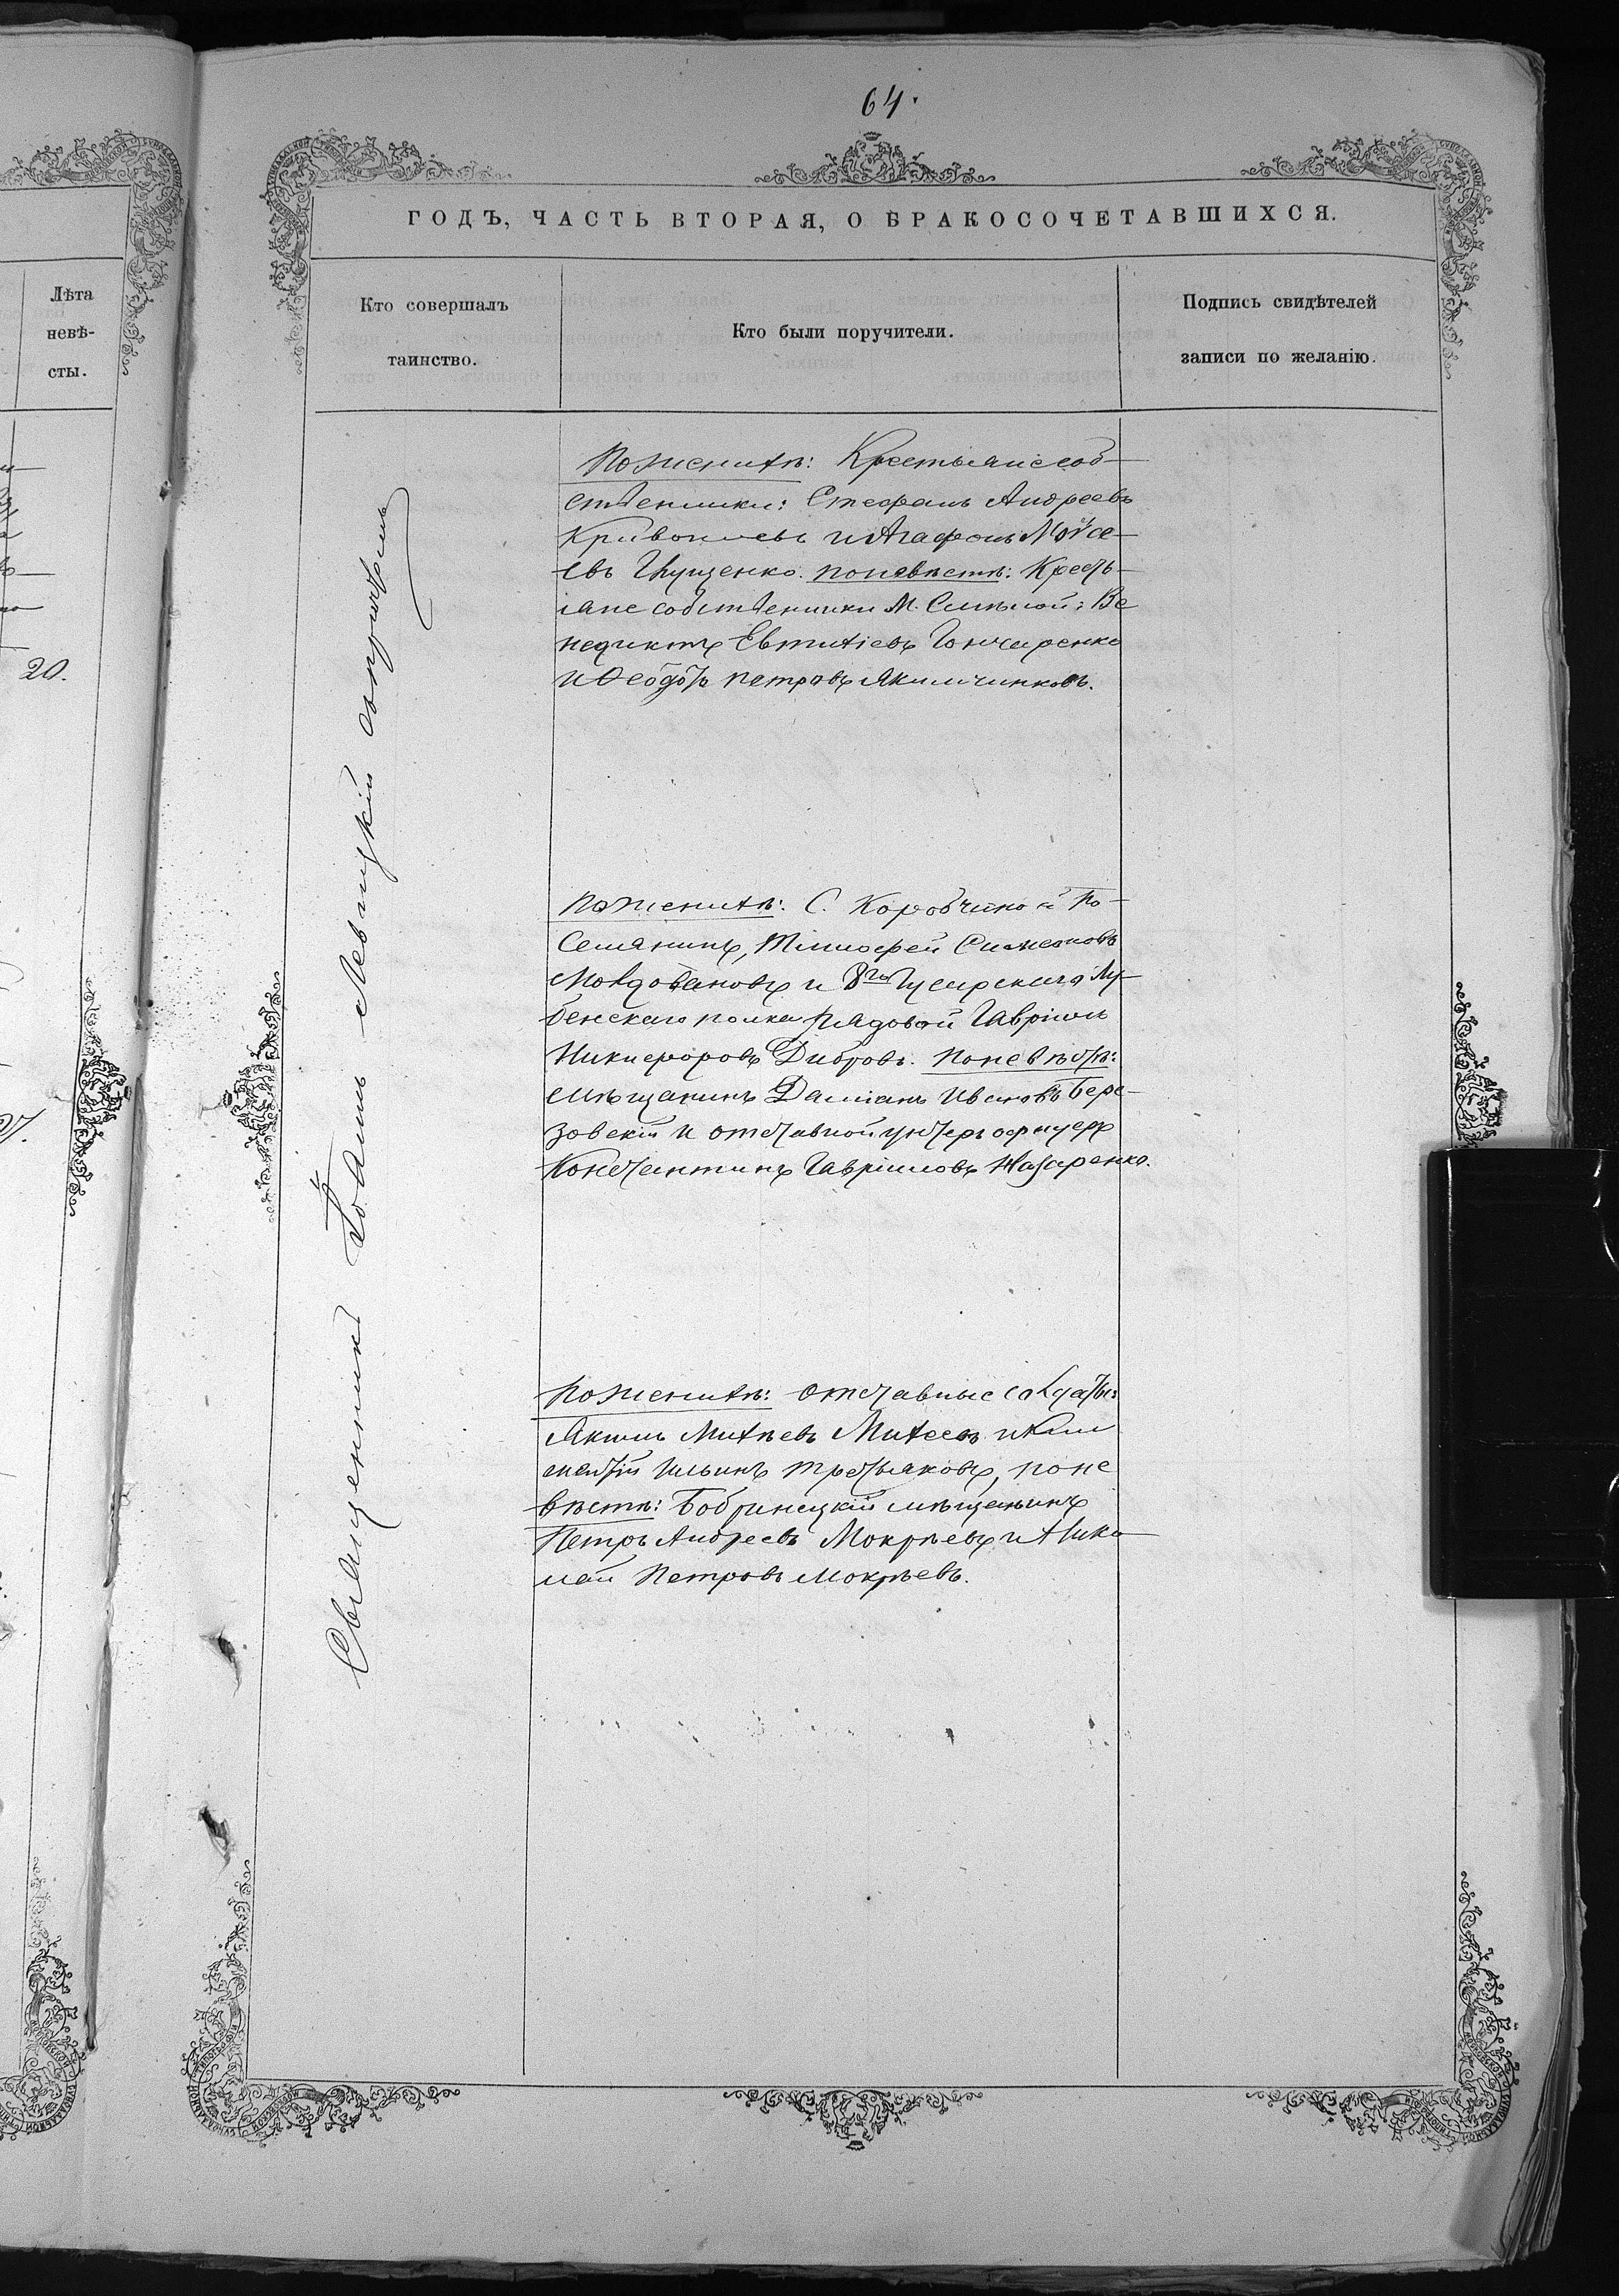 64.
ГОДЪ, ЧАСТЬ ВТОРАЯ, О БРАКОСОЧЕТАВШИХСЯ.
Лѣта
невѣ-
сты.
20.
Кто совершалъ
таинство.
Кто были поручители.
Подпись свидѣтелей
записи по желанію.
Священникъ Іоаннъ Левицкій
По женихѣ: Крестьяне соб-
ственники: Стефанъ Андреевъ
и Агафонъ Моѵсе-
евъ Глущенко. по невѣстѣ: Кресть-
яне собственники М. : Ве
недиктъ Евтихіевъ Гончаренко
и Ѳеодотъ Петровъ
По женихѣ: С. Коробчино По-
селянинъ, Тимофей Симеоновъ
Молдовановъ и 8го Гусарскаго Лу-
бенскаго полка Рядовой Гавріилъ
Никифоровъ Дибровъ. По невѣстѣ:
мѣщанинъ Даміанъ Ивановъ Бере-
зовскій и отставной унтеръ офицеръ
Константинъ Гавріиловъ Назаренко.
По женихѣ: отставные солдаты:
Якимъ Михѣевъ Михеевъ и
Ильинъ Третьяковъ, по не
вѣстѣ: Бобринецкій мѣщанинъ
Петръ Андреевъ Мокрѣевъ и Нико
лай Петровъ Мокрѣевъ.